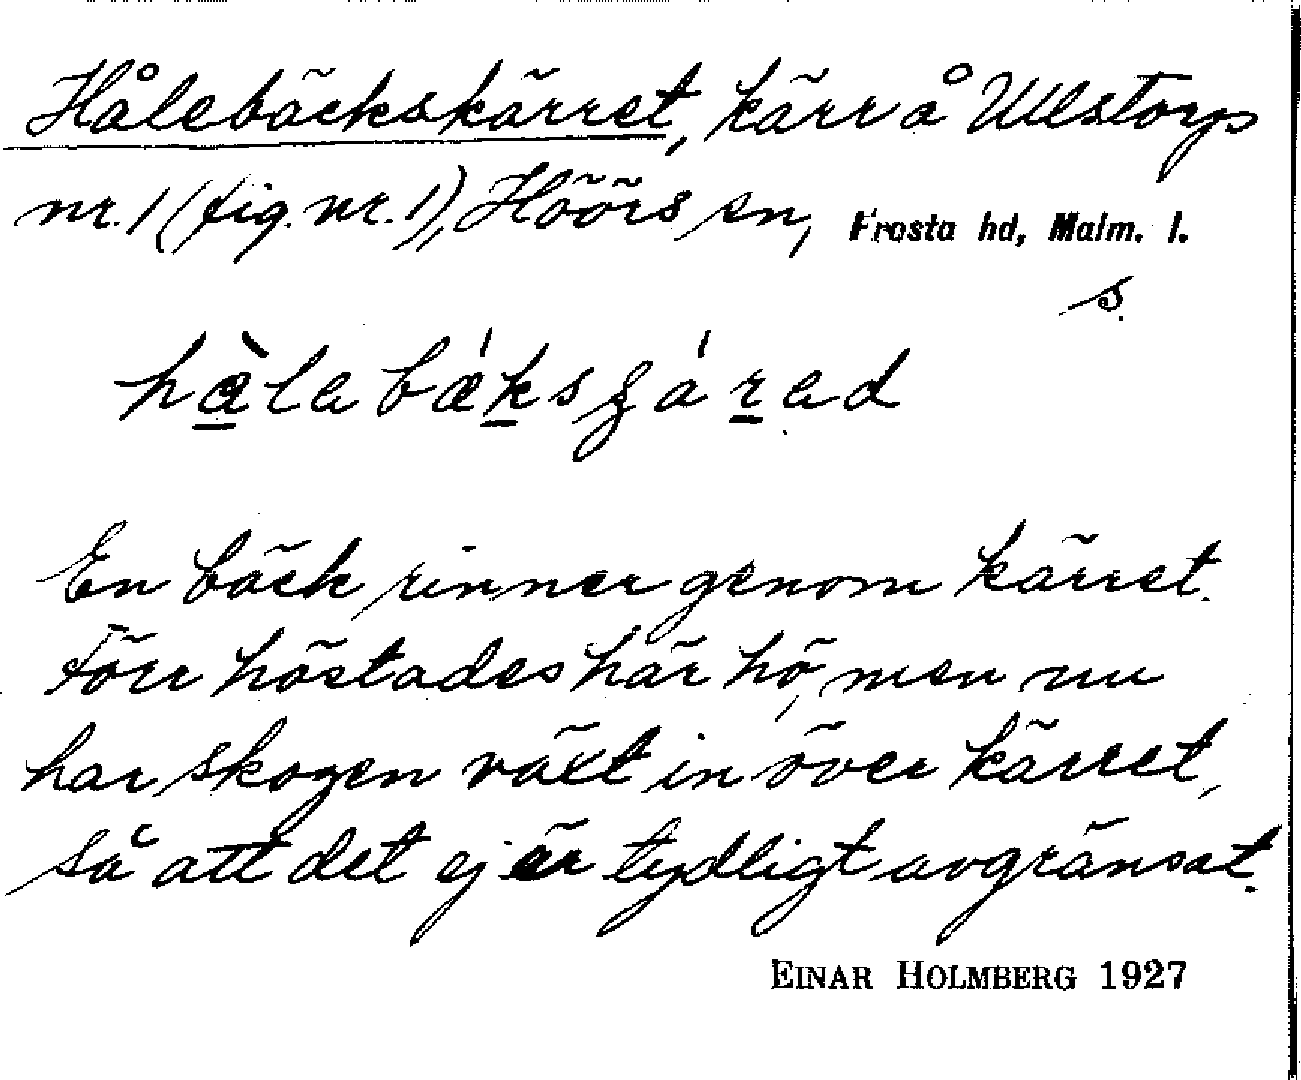 Hålebäckskärret, kärr å Ullstorps
nr. 1 (fig. nr. 1), Höörs sn, Frosta hd, Malm. l.
s.
En bäck rinner genom kärret.
Förr höstades här hö, men nu
har skogen växt in över kärret,
så att det ej är tydligt avgränsat.
EINAR HOLMBERG 1927